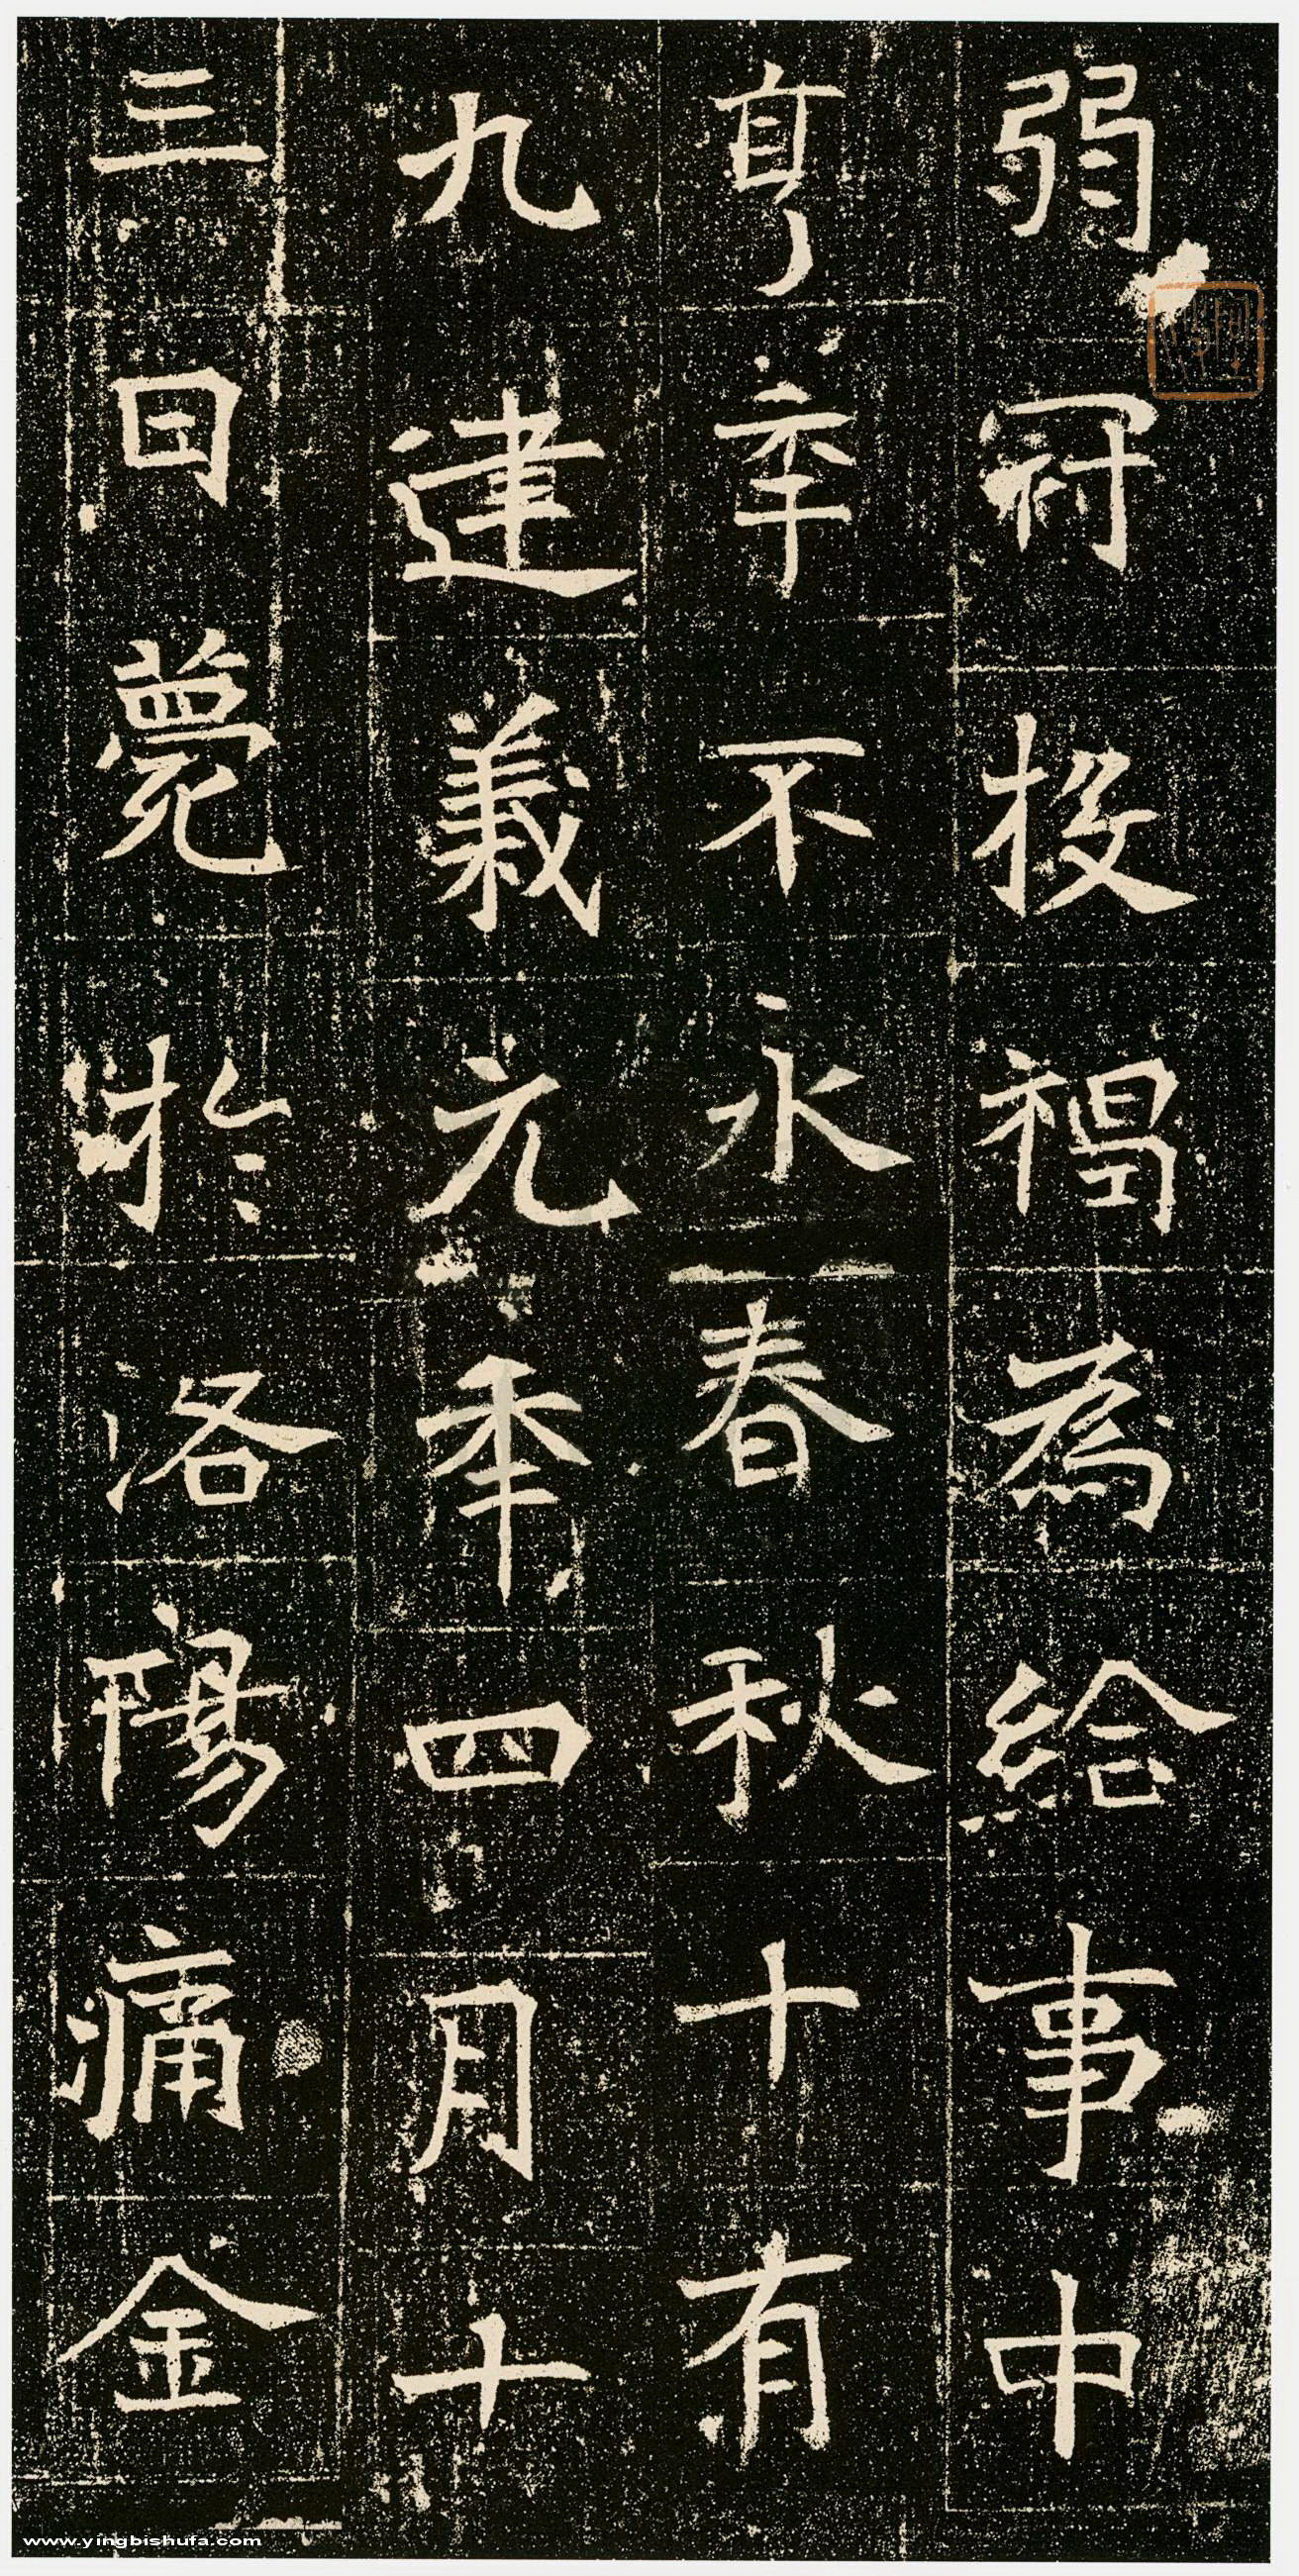 弱冠投褐為給事中
享年不永春秋十有
九建義元年四月十
三日薨於洛陽痛金
www.yingbishufa.com